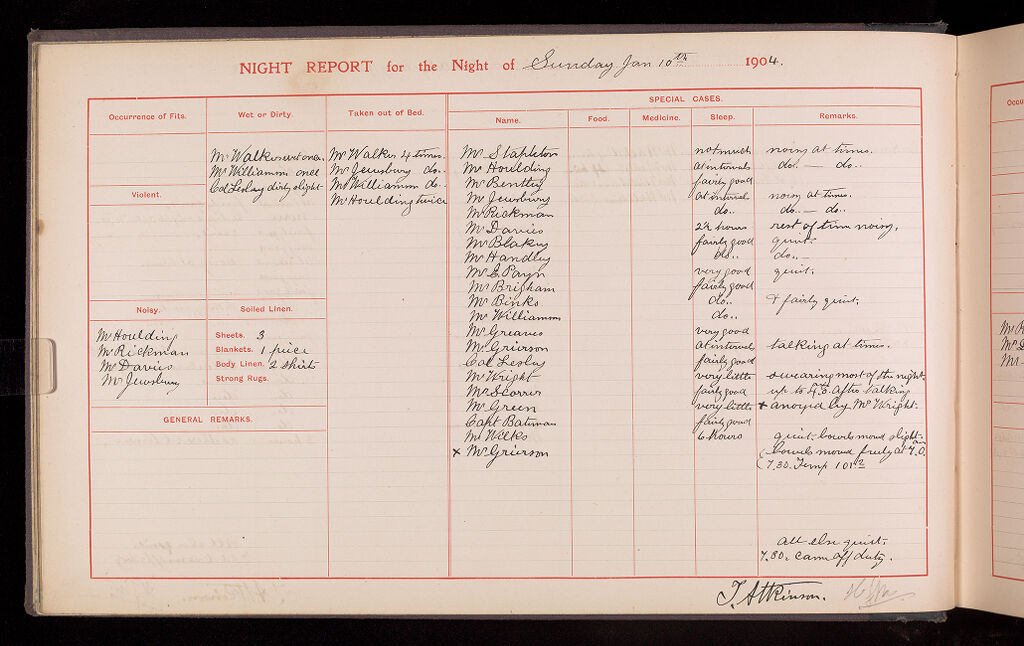 NIGHT REPORT for the Night of Sunday Jan 10th 1904.
Occurrence of Fits.
Wet or Dirty.
Mr Walker wet once.
Mr Williamson once
Col Lesley dirty slight
Taken out of Bed.
Mr Walker 4 times.
Mr Jewsbury do..
Mr Williamson do..
Mr Houlding twice
Violent.
Noisy.
Mr Houlding
Mr Rickman
Mr Davies
Mr Jewsbury
Soiled Linen.
Sheets. 3
Blankets. 1 piece
Body Linen. 2 shirts
Strong Rugs.
GENERAL REMARKS.
SPECIAL CASES.
Name. Food. Medicine. Sleep. Remarks.
Mr Stapleton not much noisy at times.
Mr Houlding at intervals do.. — do..
Mr Bentley fairly good
Mr Jewsbury at interval noisy at times.
Mr Rickman do.. do.. — do..
Mr Davies 2½ hours rest of time noisy.
Mr Blakey fairly good quiet.
Mr Handley do.. do..
Mr E Payn very good quiet.
Mr Brigham fairly good
Mr Binks do.. & fairly quiet.
Mr Williamson do..
Mr Greaves very good
Mr Grierson at intervals talking at times.
Col Lesley fairly good
Mr Wright very little swearing most of the night.
Mr Scorrer fairly good up to 4.45. After talking
Mr Green very little + anoyed by Mr Wright.
Capt Bateman fairly good
Mr Wilks 6 hours quiet. bowels moved slight
x Mr Grierson bowels moved freely at 7.0. am
7.30. Temp 101.2
all else quiet.
7.30. came off duty.
T. Atkinson.